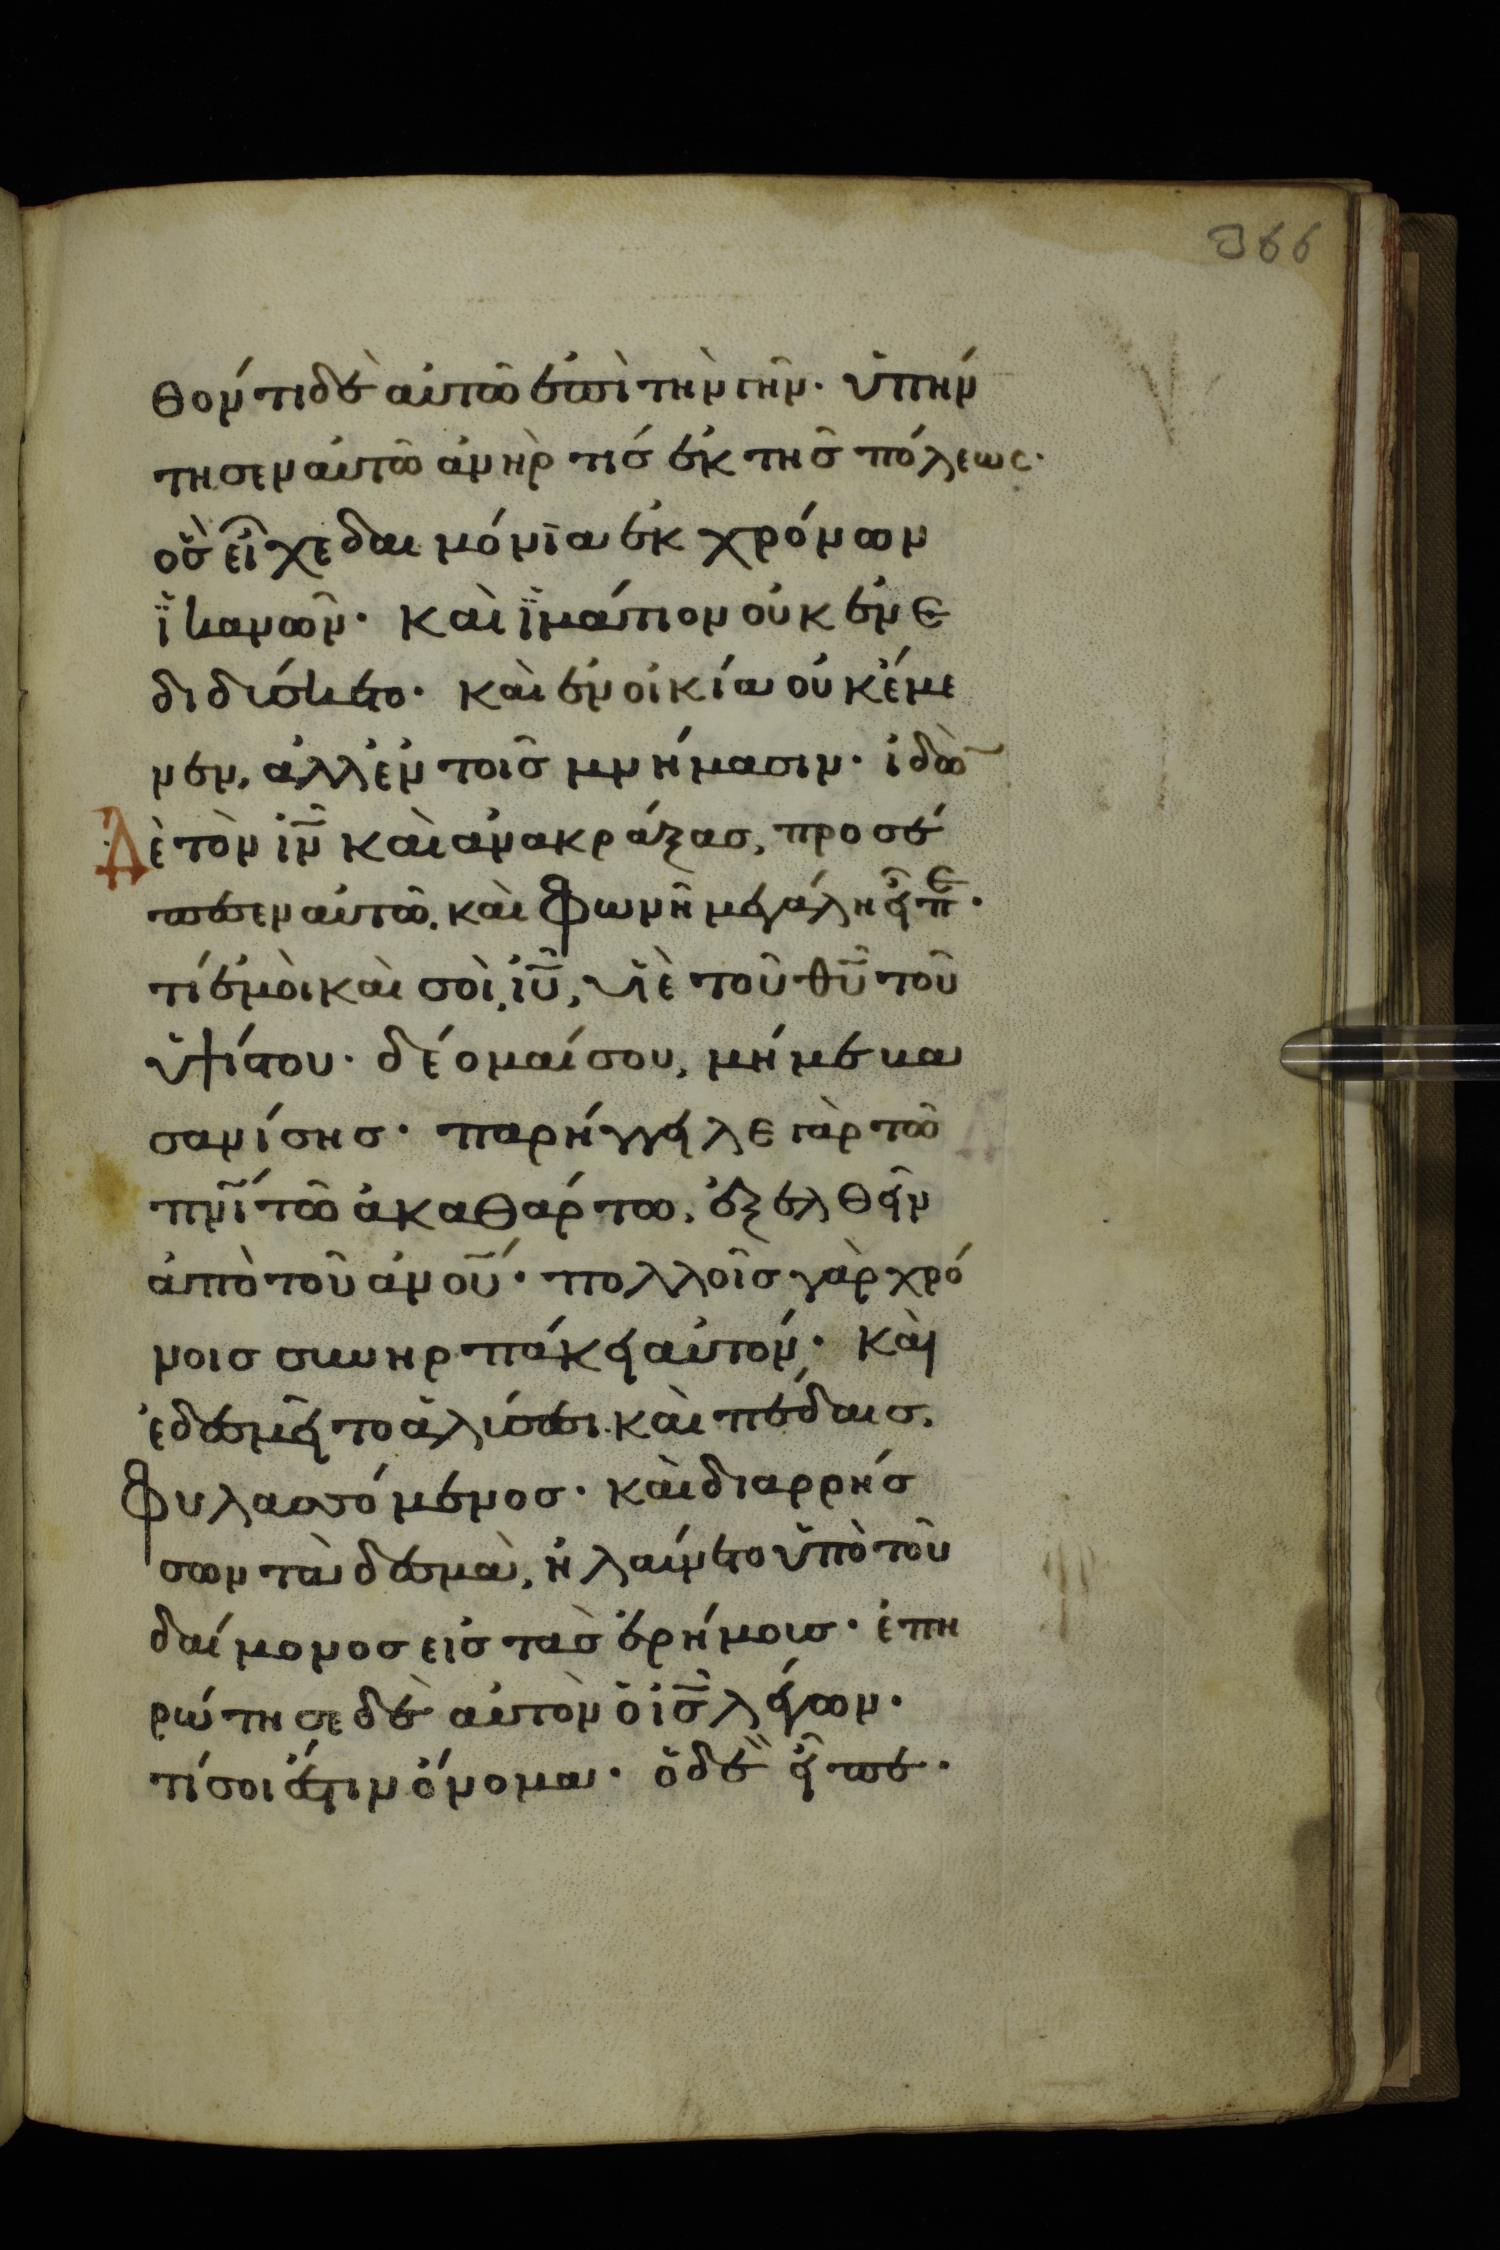 366
θόντι δὲ αὐτῶ ἐπὶ τὴν γῆν· ὑπήν
τησεν αὐτῶ ἀνὴρ τίσ ἐκ τῆσ πόλεως·
ὃσ εἶχε δαιμόνια ἐκ χρόνων
ἱκανῶν· καὶ ἱμάτιον οὐκ ἐνε
διδίσκετο· καὶ ἐν οἰκία οὐκ έμε
νεν, ἀλλ' ἐν τοῖσ μνήμασιν· ἰδὼ
Δὲ τὸν ἰν̅ καὶ ἀνακράξασ, προσέ
πεσεν αὐτῶ. καὶ φωνῆ μεγάλη εἶπε·
τί ἐμοὶ καὶ σοὶ, ἰυ̅, υἱὲ τοῦ θυ̅ τοῦ
ὑψίστου· δέομαί σου, μή με βα
σανίσησ· παρήγγελε γὰρ τῶ
πνι̅ τῶ ἀκαθάρτω, ἐξελθεῖν
ἀπὸ τοῦ ἀνου̅· πολλοῖσ γὰρ χρό
νοισ συνηρπάκει αὐτόν· καὶ
ἐδεσμεῖτο ἁλύσεσι καὶ πέδαισ,
φυλασσόμενοσ· καὶ διαρρήσ
σων τὰ δεσμὰ, ἠλαύνετο ὑπὸ τοῦ
δαίμονοσ εἰσ τὰσ ἐρήμουσ· ἐπη
ρώτησε δὲ αὐτὸν ὁ ἰσ̅ λέγων·
τί σοι ἐστιν όνομα· ὁ δὲ εἶπε·